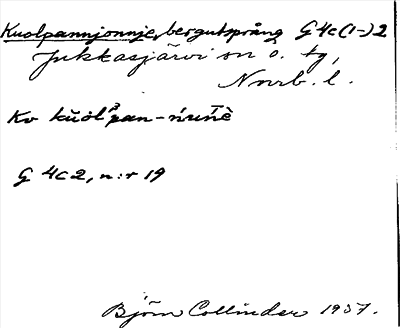 Kuolpannjonnje, bergutsprång G 4c(1-)2
Jukkasjärvi sn o. tg,
Nnrb. l.
Kv kŭöl'pan-
G 4c2, n:r 19
Björn Collinder 1937.